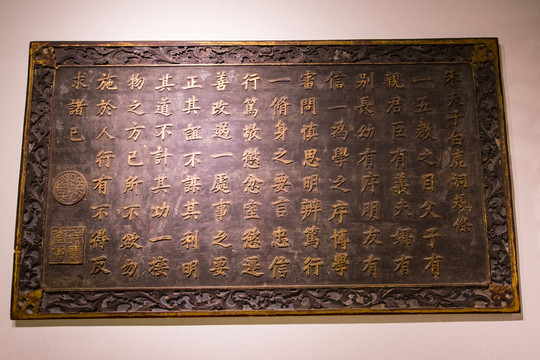 朱夫子白鹿洞規條
一五教之目父子有
親君臣有義夫婦有
別長幼有序朋友有
信一為學之序博學
審問慎思明辨篤行
一脩身之要言忠信
行篤敬懲忿窒慾遷
善改過一處事之要
正其誼不謀其利明
其道不計其功一接
物之方己所不欲勿
施於人行有不得反
求諸己